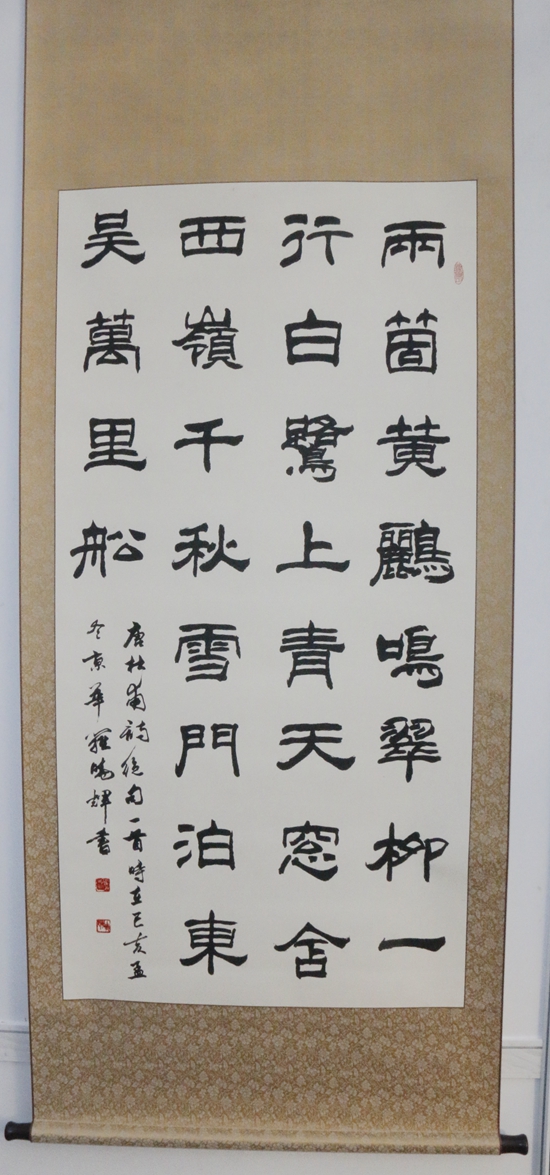 兩箇黄鸝鳴翠柳一
行白鷺上青天窓含
西嶺千秋雪門泊東
吴萬里船
唐杜甫詩絶句一首時在己亥孟
冬京華羅曉輝書